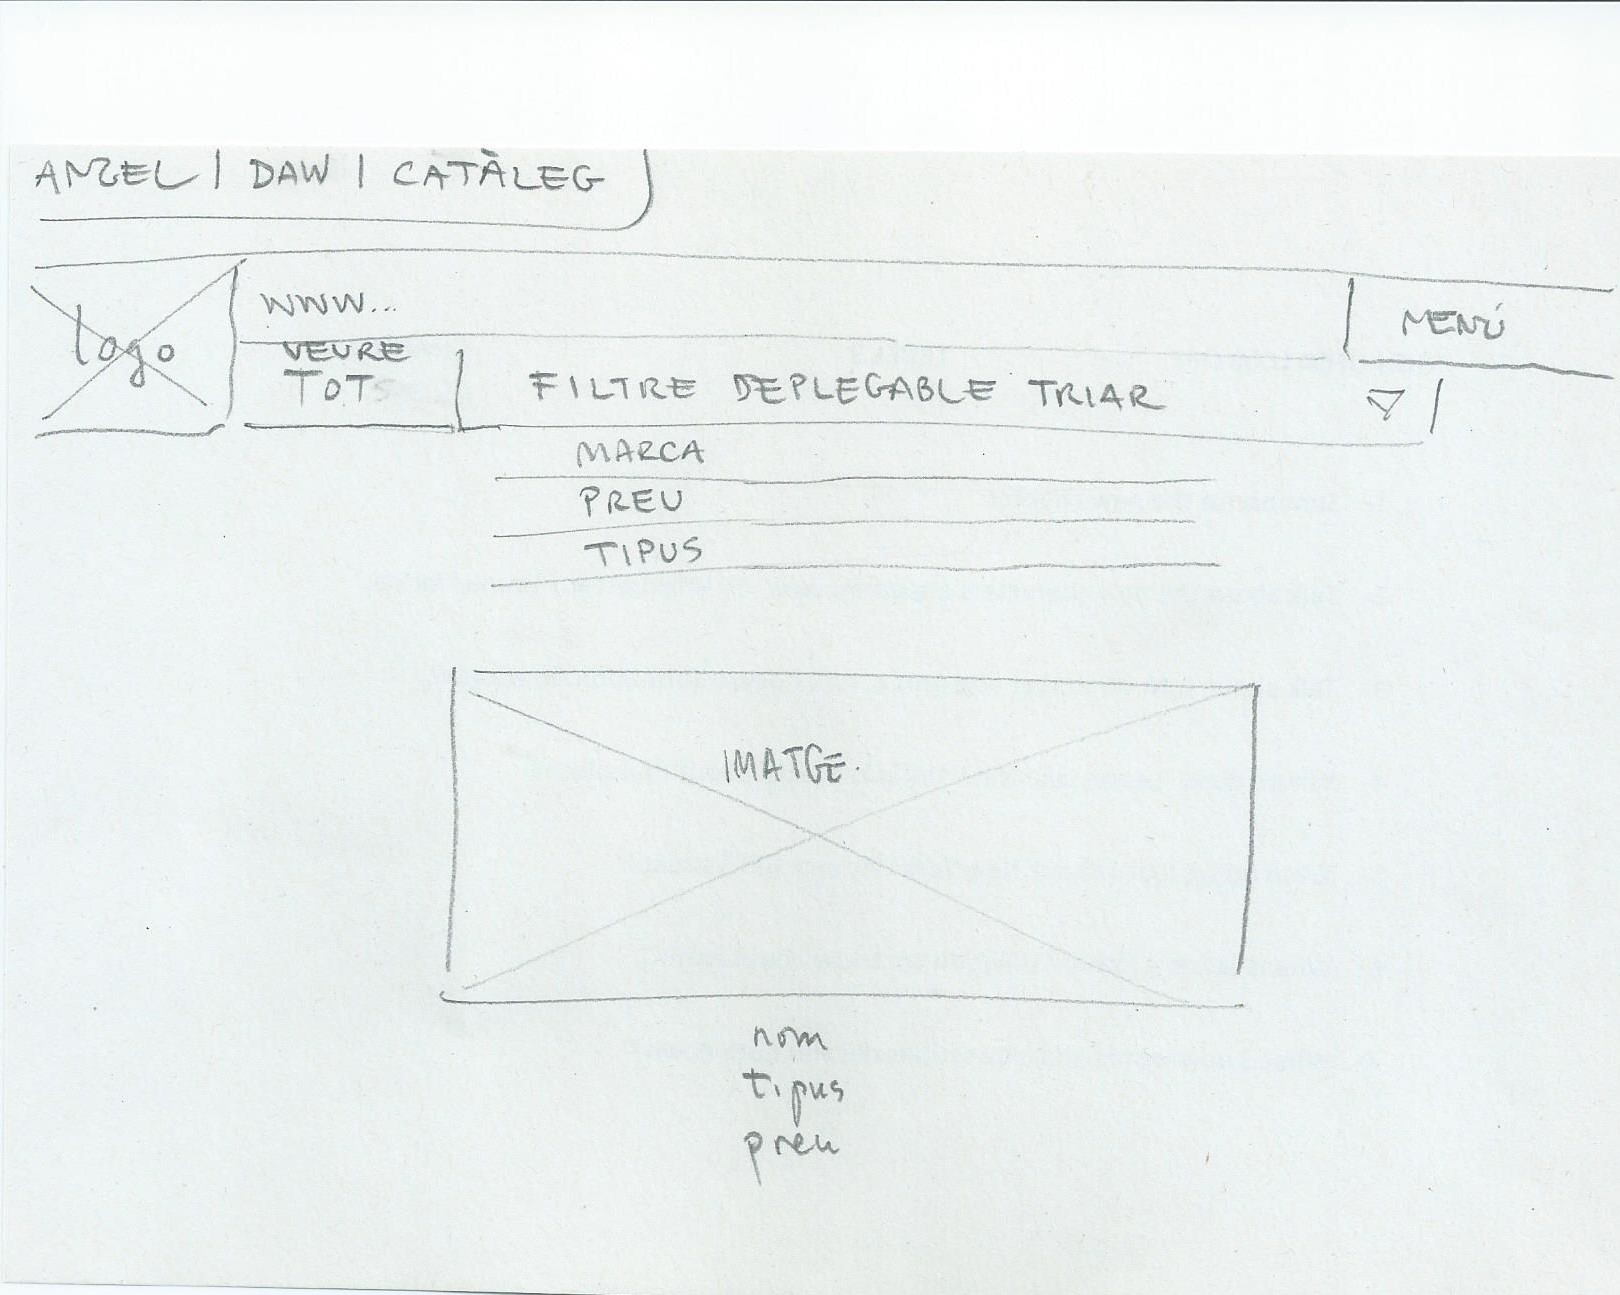 ANZEL | DAW | CATÀLEG
logo
WWW...
MENÚ
VEURE
TOTS
FILTRE DEPLEGABLE TRIAR
MARCA
PREU
TIPUS
IMATGE.
nom
tipus
preu